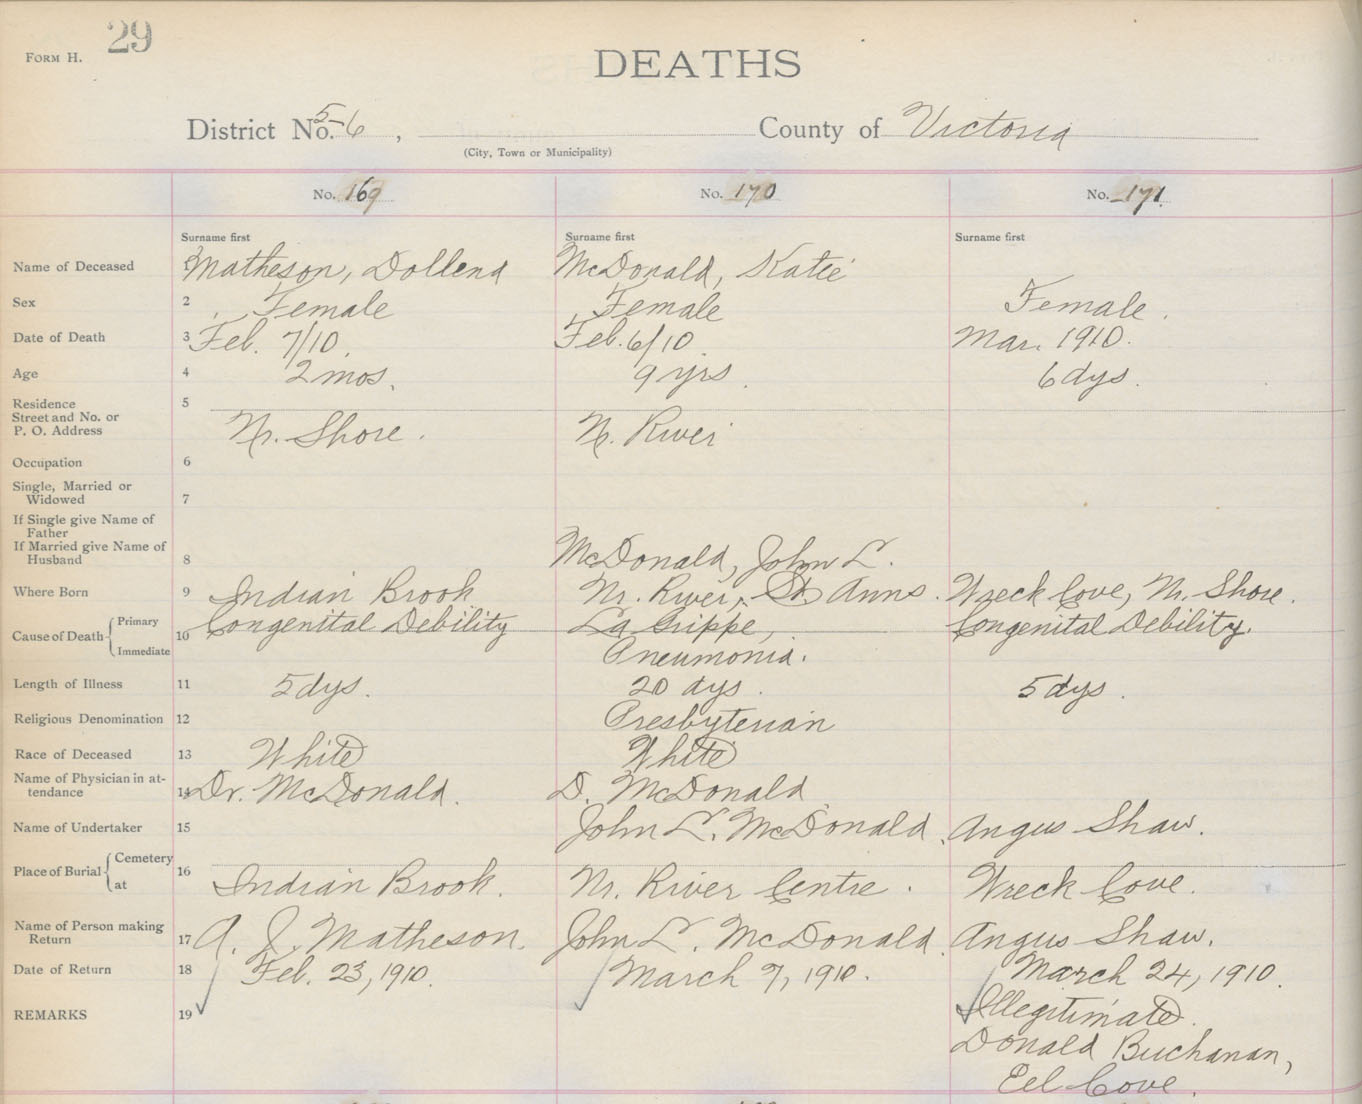 29
FORM H.
DEATHS
District No. 5-6, County of Victoria
(City, Town or Municipality)
No. 169 No. 170 No. 171
Surname first Surname first Surname first
Name of Deceased Matheson, Dollena McDonald, Katie
Sex 2 Female Female Female.
Date of Death 3 Feb. 7/10. Feb. 6/10. Mar. 1910.
Age 4 2 mos. 9 yrs. 6 dys.
Residence 5
Street and No. or
P. O. Address Nr. Shore. N. River
Occupation 6
Single, Married or
Widowed 7
If Single give Name of
Father
If Married give Name of
Husband 8 McDonald, John L.
Where Born 9 Indian Brook Nr. River, St. Anns. Wreck Cove, Nr. Shore.
Cause of Death { Primary 10 Congenital Debility La Grippe, Congenital Debility.
Immediate Pneumonia.
Length of Illness 11 5 dys. 20 dys. 5 dys.
Religious Denomination 12 Presbyterian
Race of Deceased 13 White White
Name of Physician in at-
tendance 14 Dr. McDonald. D. McDonald
Name of Undertaker 15 John L. McDonald. Angus Shaw.
Place of Burial { Cemetery 16
at Indian Brook. Nr. River Centre. Wreck Cove.
Name of Person making
Return 17 A. J. Matheson. John L. McDonald. Angus Shaw.
Date of Return 18 Feb. 23, 1910. March 7, 1910. March 24, 1910.
REMARKS 19 Illegitimate.
Donald Buchanan,
Eel Cove.